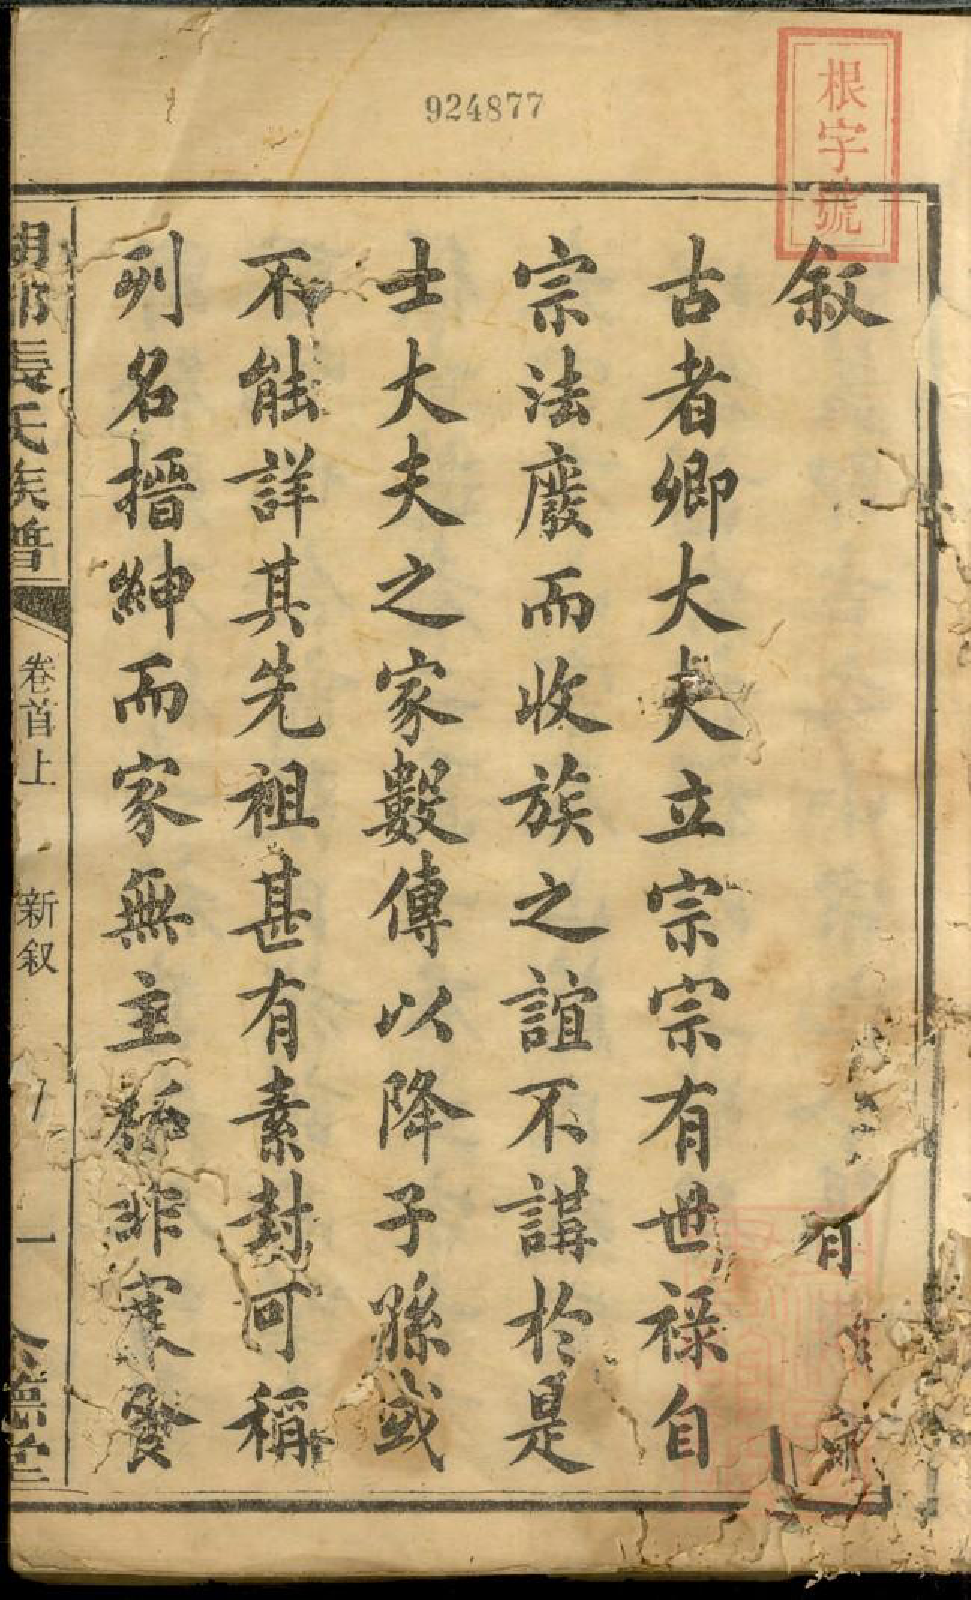 924877
根字號
叙
古者卿大夫立宗宗有世祿自
宗法廢而收族之誼不講於是
士大夫之家數傳以降子孫或
不能詳其先祖甚有素封可稱
列名搢紳而家無主祏非寒食
張氏族譜
卷首上
新叙
一